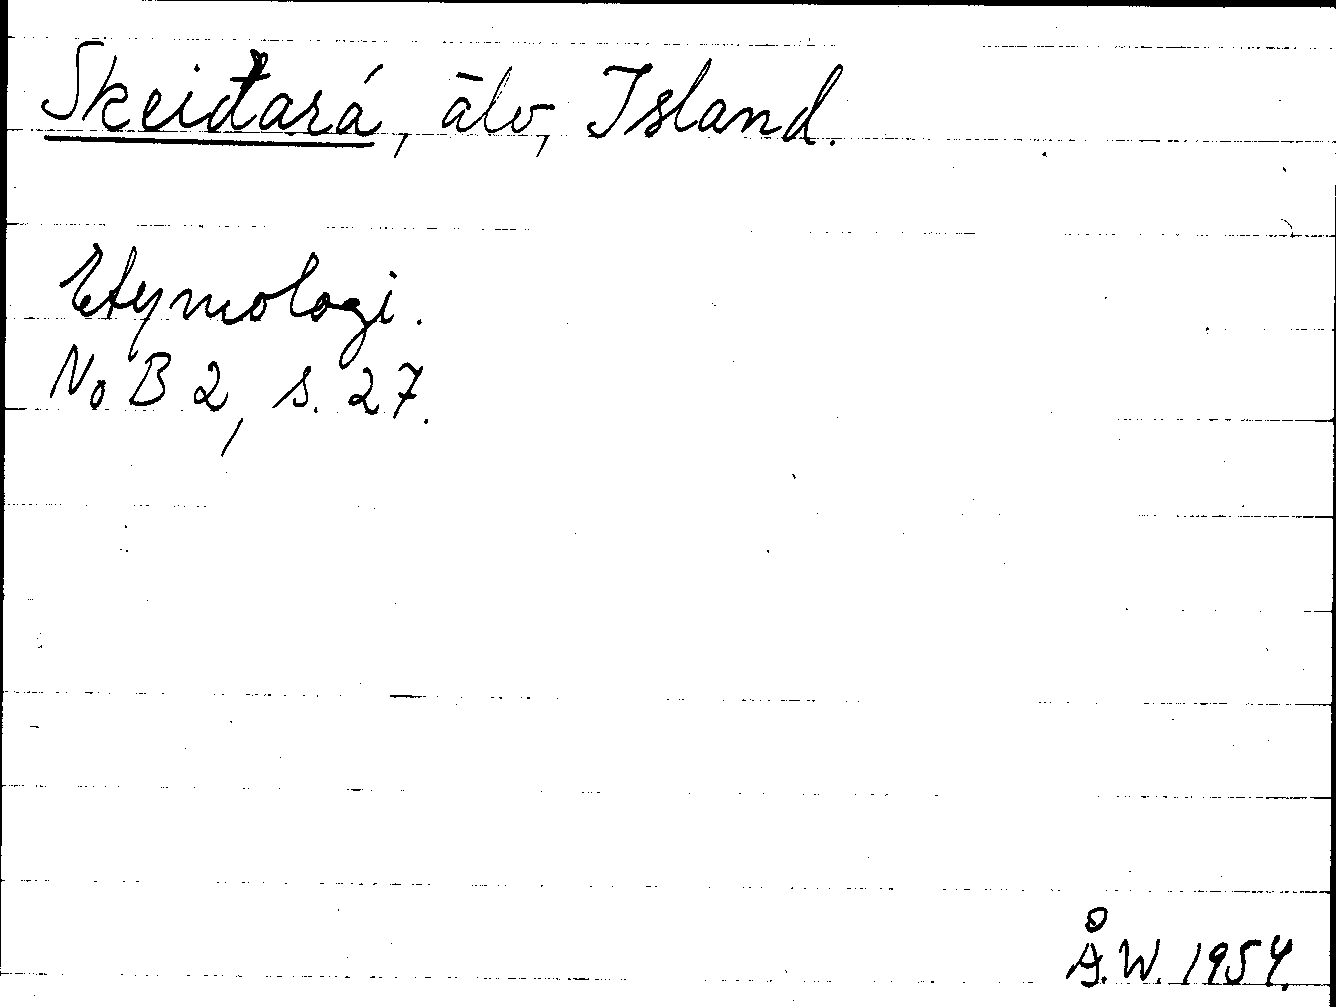 Skeiðará, älv, Island.
Etymologi.
NoB 2, s. 27.
Å.W. 1954.